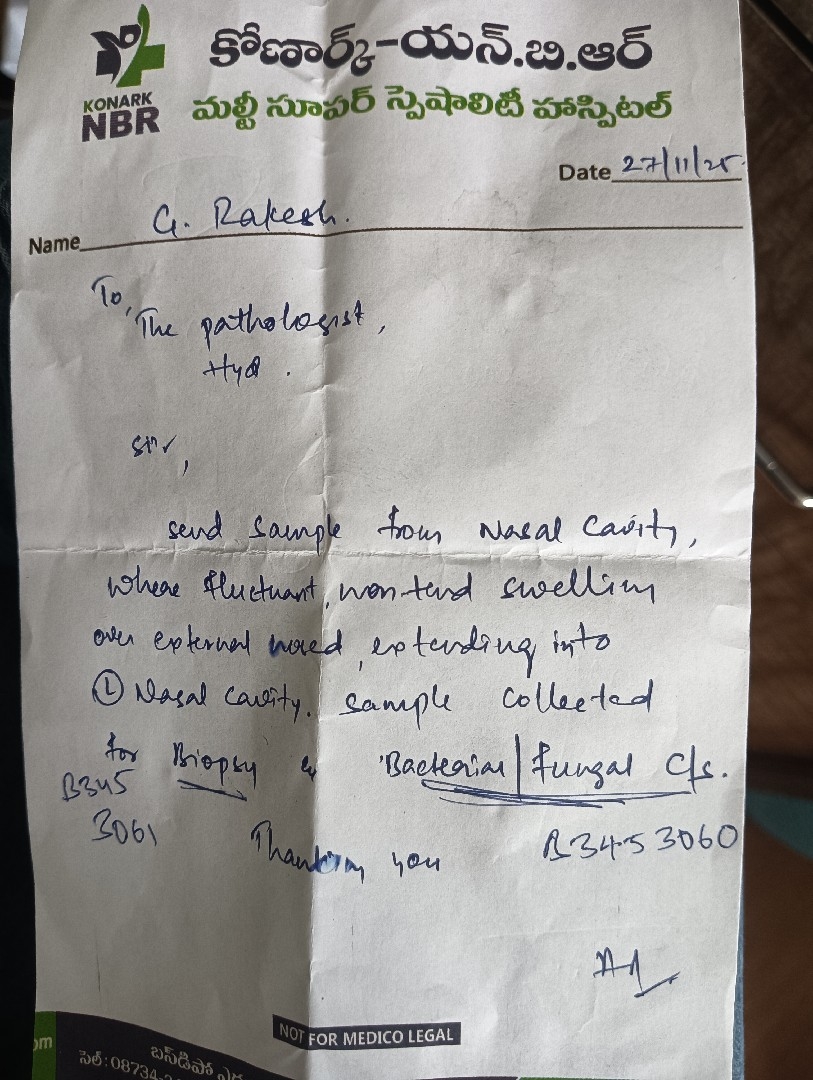 కోణార్క్-యన్.బి.ఆర్
KONARK
NBR
మల్టీ సూపర్ స్పెషాలిటీ హాస్పిటల్
Date 27/11/25
Name G. Rakesh.
To,
The pathologist,
Hyd.
Sir,
send sample from Nasal Cavity,
where fluctuant, non-tend swelling
over external nosed, extending into
Ⓛ Nasal cavity. sample collected
for Biopsy & Bacterial/fungal c/s.
B345
3061
Thanking you
B3453060
NOT FOR MEDICO LEGAL
om
బస్‌డిపో
సెల్: 08734-